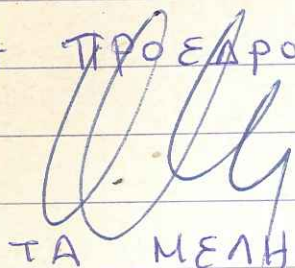 - ΠΡΟΕΔΡΟ
ΤΑ ΜΕΛΗ